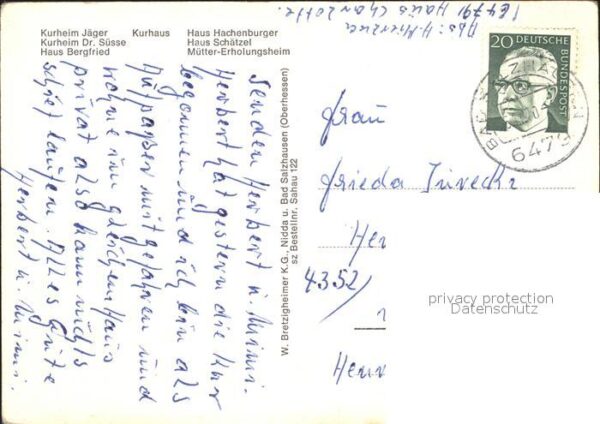 Kurheim Jäger Kurhaus Haus Hachenburger
Kurheim Dr. Süsse Haus Schätzel
Haus Bergfried Mütter-Erholungsheim
Abs: H.
6479 Haus Charlotte.
20 DEUTSCHE
BUNDESPOST
BAD SALZHAUSEN
6479
senden Herbert u. Mimi.
Herbert hat gestern die Kur
begonnen und ich bin als
Aufpasser mitgefahren und
wohne im gleichen Haus
privat also kann nichts
schief laufen. Alles Gute
Herbert u. Mimi.
W. Bretzigheimer K.G., Nidda u. Bad Salzhausen (Oberhessen)
sz Bestellnr. Sahau 122
Frau
Frieda
Her
4352
privacy protection
Datenschutz